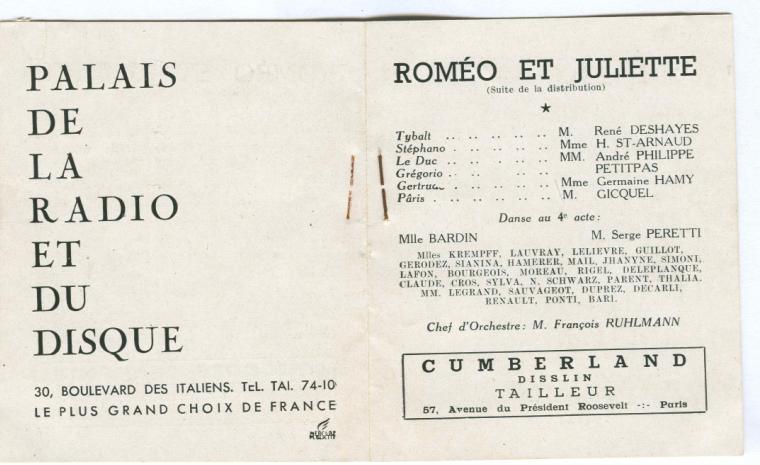 PALAIS
DE
LA
RADIO
ET
DU
DISQUE
30, BOULEVARD DES ITALIENS. TEL. TAI. 74-10
LE PLUS GRAND CHOIX DE FRANCE
ROMÉO ET JULIETTE
(Suite de la distribution)
Tybalt .. .. .. .. .. M. René DESHAYES
Stéphano . .. .. .. .. Mme H. ST-ARNAUD
Le Duc .. .. .. .. .. MM. André PHILIPPE
Grégorio . .. .. .. .. PETITPAS
Gertrude . .. .. .. .. Mme Germaine HAMY
Pâris . .. .. .. .. M. GICQUEL
Danse au 4e acte :
Mlle BARDIN M. Serge PERETTI
Mlles KREMPFF, LAUVRAY, LELIEVRE, GUILLOT,
GERODEZ, SIANINA, HAMERER, MAIL, JHANYNE, SIMONI,
LAFON, BOURGEOIS, MOREAU, RIGEL, DELEPLANQUE,
CLAUDE, CROS, SYLVA, N. SCHWARZ, PARENT, THALIA.
MM. LEGRAND, SAUVAGEOT, DUPREZ, DECARLI,
RENAULT, PONTI, BARI.
Chef d'Orchestre : M. François RUHLMANN
CUMBERLAND
DISSLIN
TAILLEUR
57, Avenue du Président Roosevelt -:- Paris